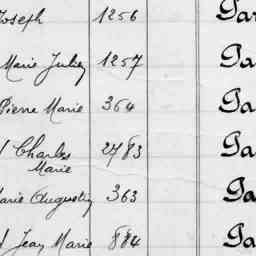 Joseph 1256 Pa
Marie Julien 1257 Pa
Pierre Marie 364 Pa
Charles 2783 Pa
Marie
Marie Augustin 363 Pa
Jean Marie 884 Pa